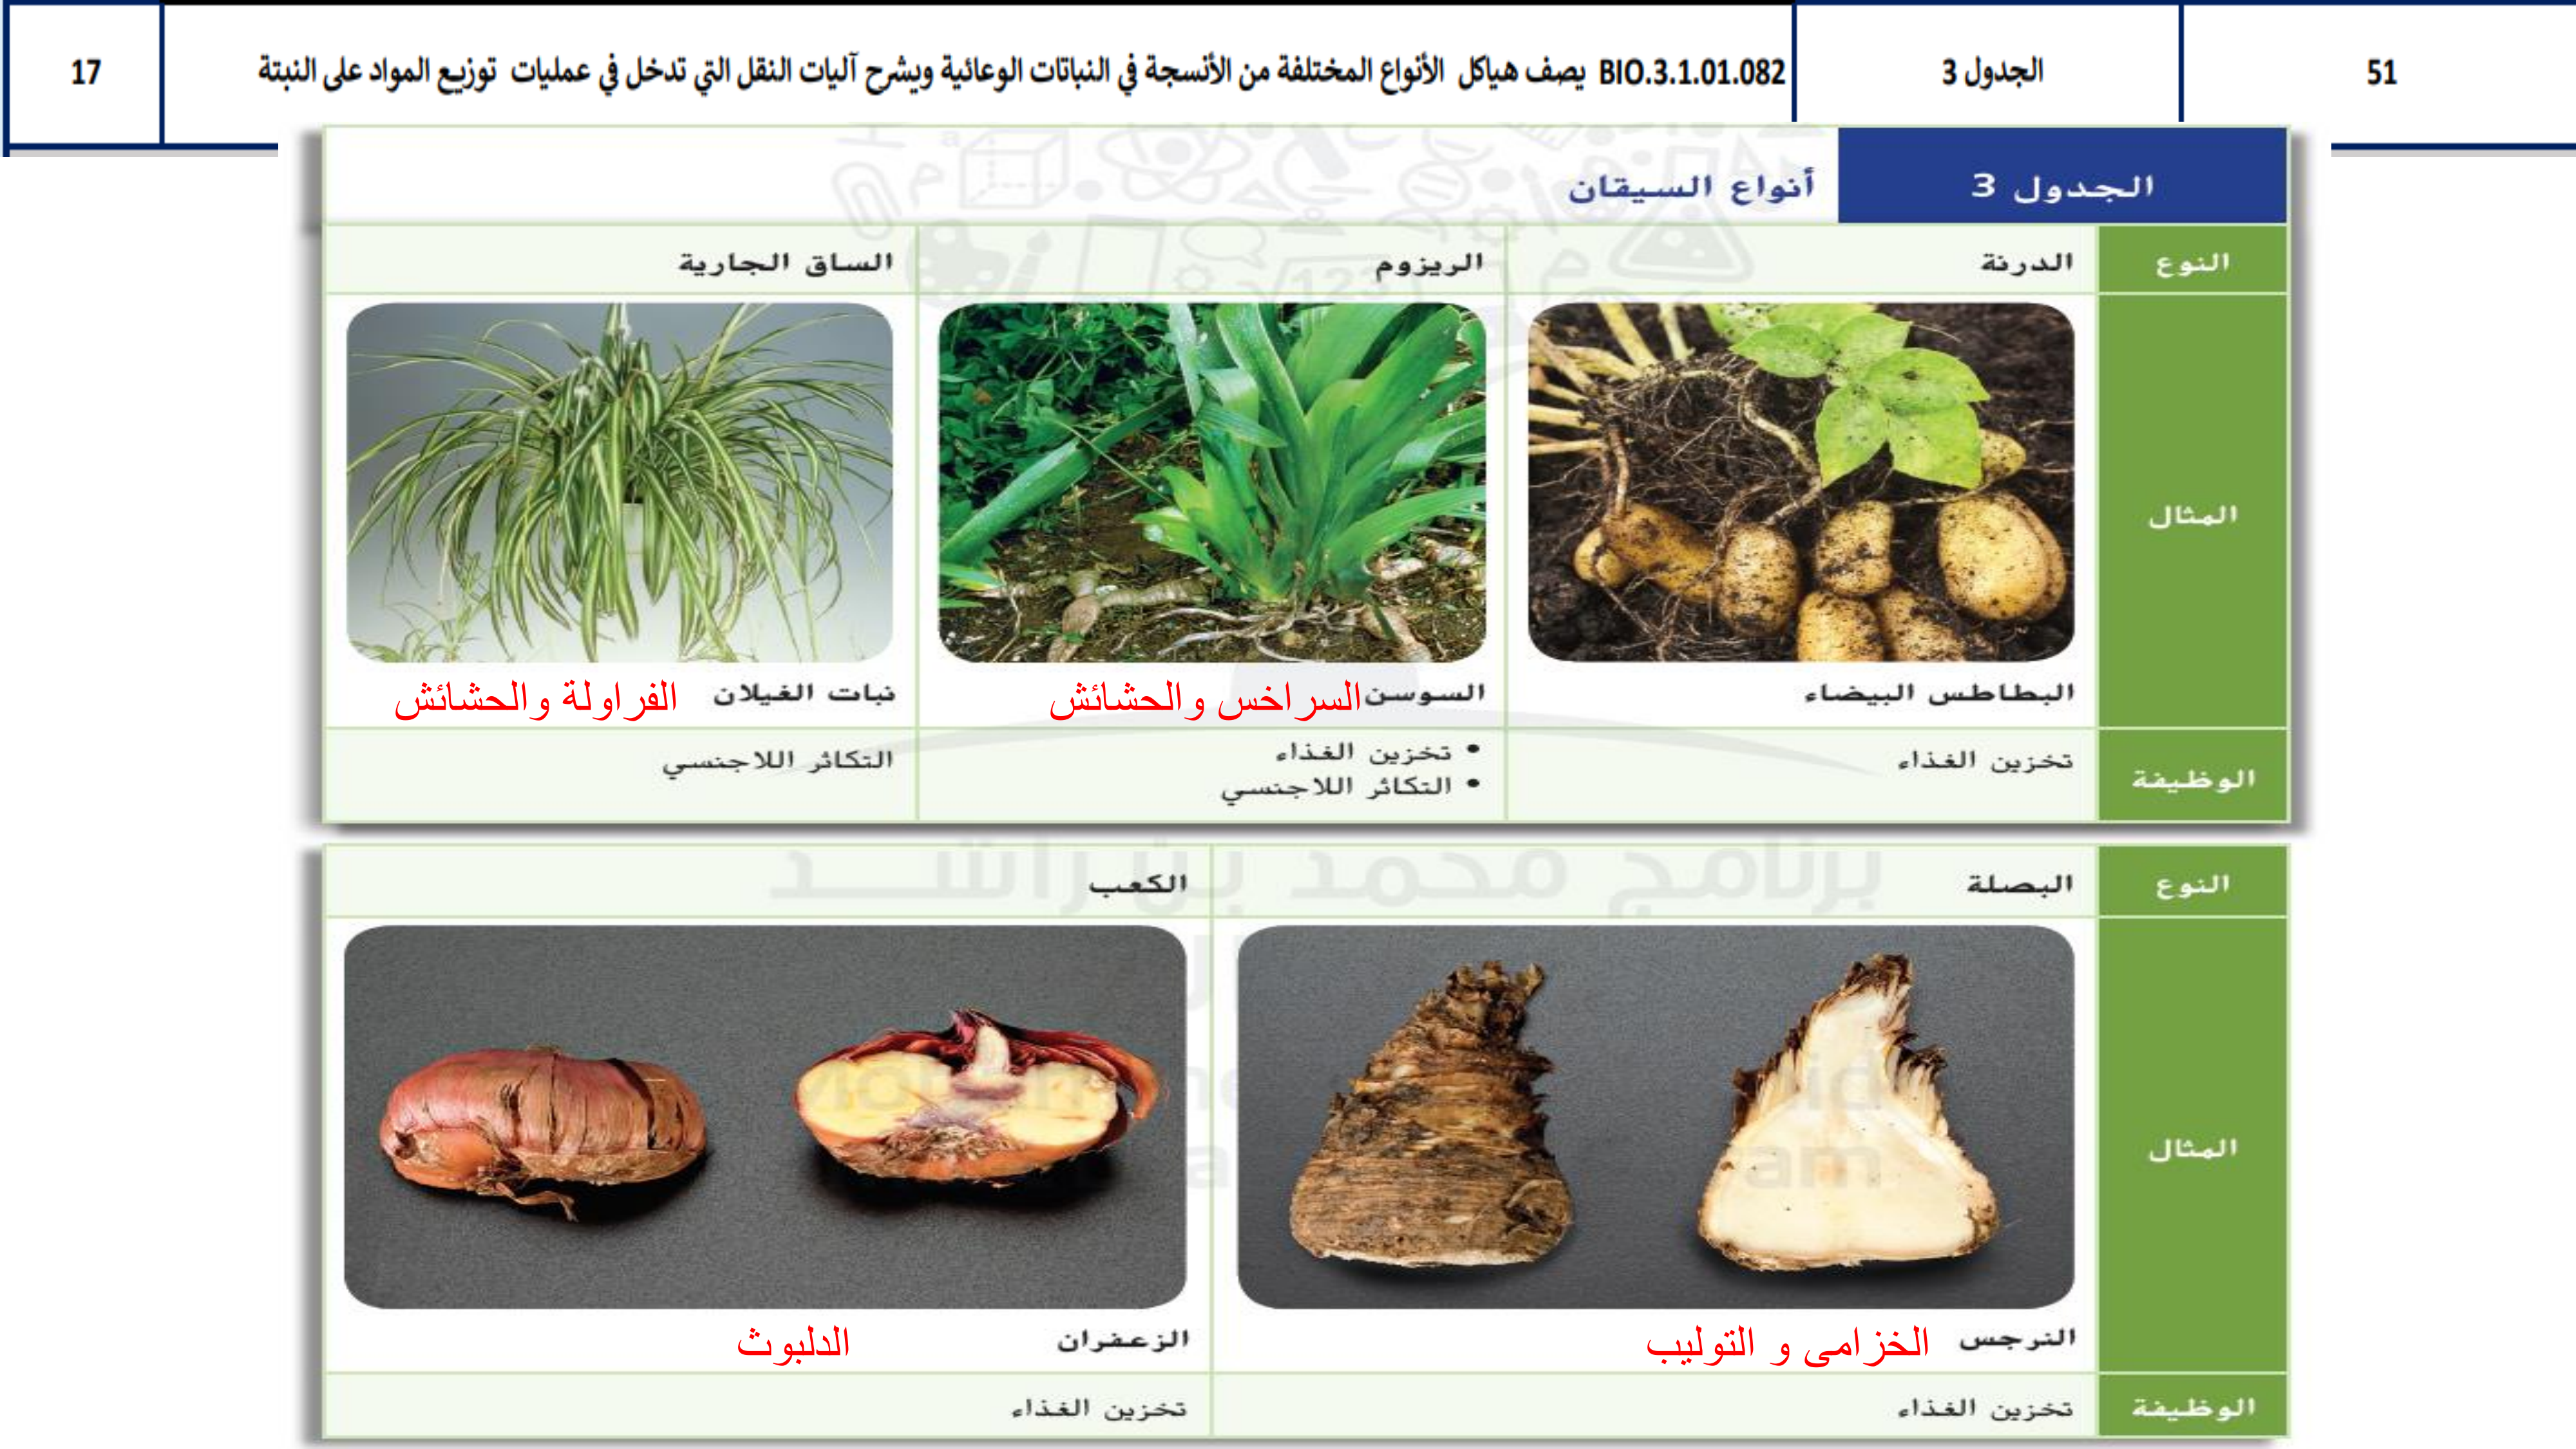 51 الجدول 3 BIO.3.1.01.082 يصف هياكل الأنواع المختلفة من الأنسجة في النباتات الوعائية ويشرح آليات النقل التي تدخل في عمليات توزيع المواد على النبتة 17
الجدول 3 أنواع السيقان
النوع الدرنة الريزوم الساق الجارية
المثال
البطاطس البيضاء السوسن السراخس والحشائش نبات الغيلان الفراولة والحشائش
الوظيفة تخزين الغذاء • تخزين الغذاء التكاثر اللاجنسي
• التكاثر اللاجنسي
برنامج محمد بن راشد
النوع البصلة الكعب
المثال
النرجس الخزامى و التوليب الزعفران الدلبوث
الوظيفة تخزين الغذاء تخزين الغذاء